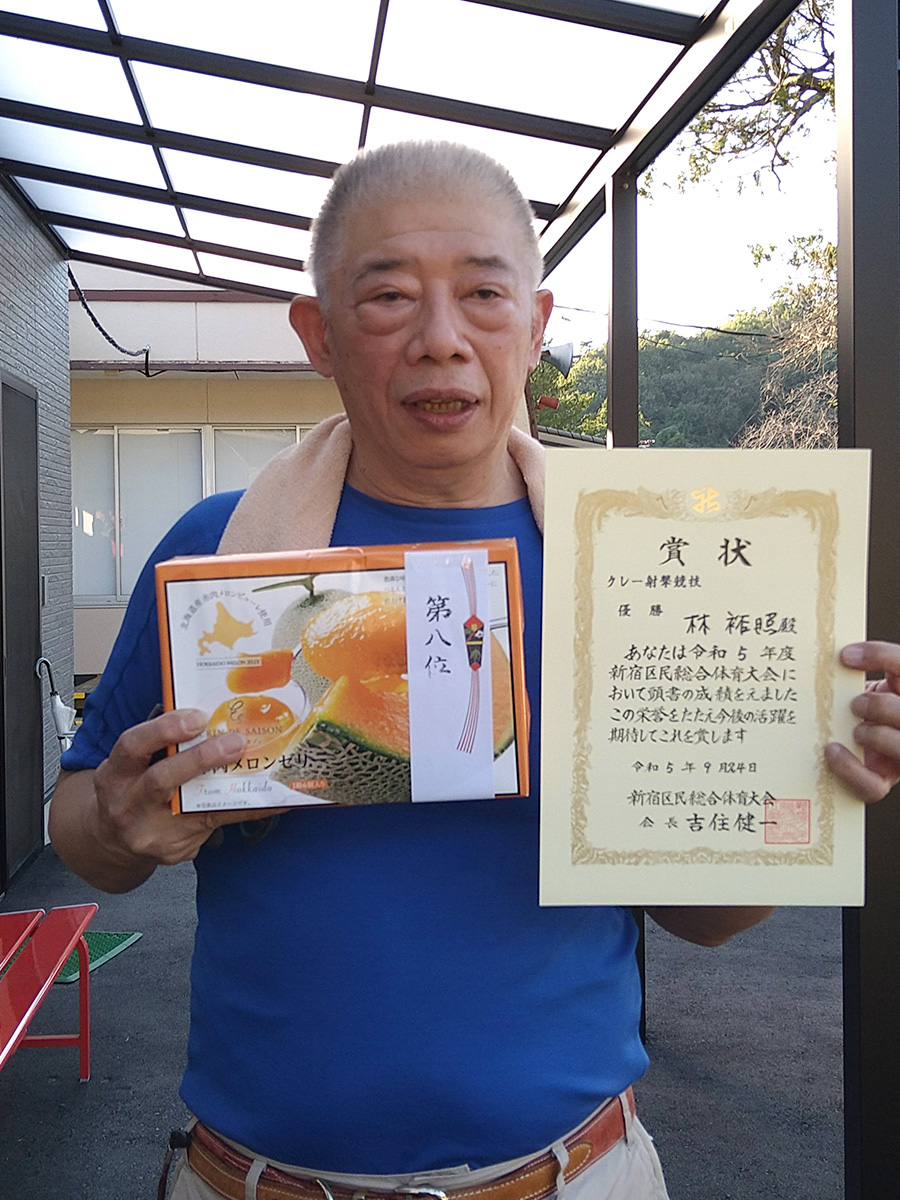 北海道産赤肉メロンピューレ使用
HOKKAIDO MELON
DE SAISON
肉メロンゼリー
From Hokkaido
第八位
賞状
クレー射撃競技
優勝
林 祐照殿
あなたは令和5年度
新宿区民総合体育大会に
おいて頭書の成績をえました
この栄誉をたたえ今後の活躍を
期待してこれを賞します
令和5年9月24日
新宿区民総合体育大会
会長 吉住健一